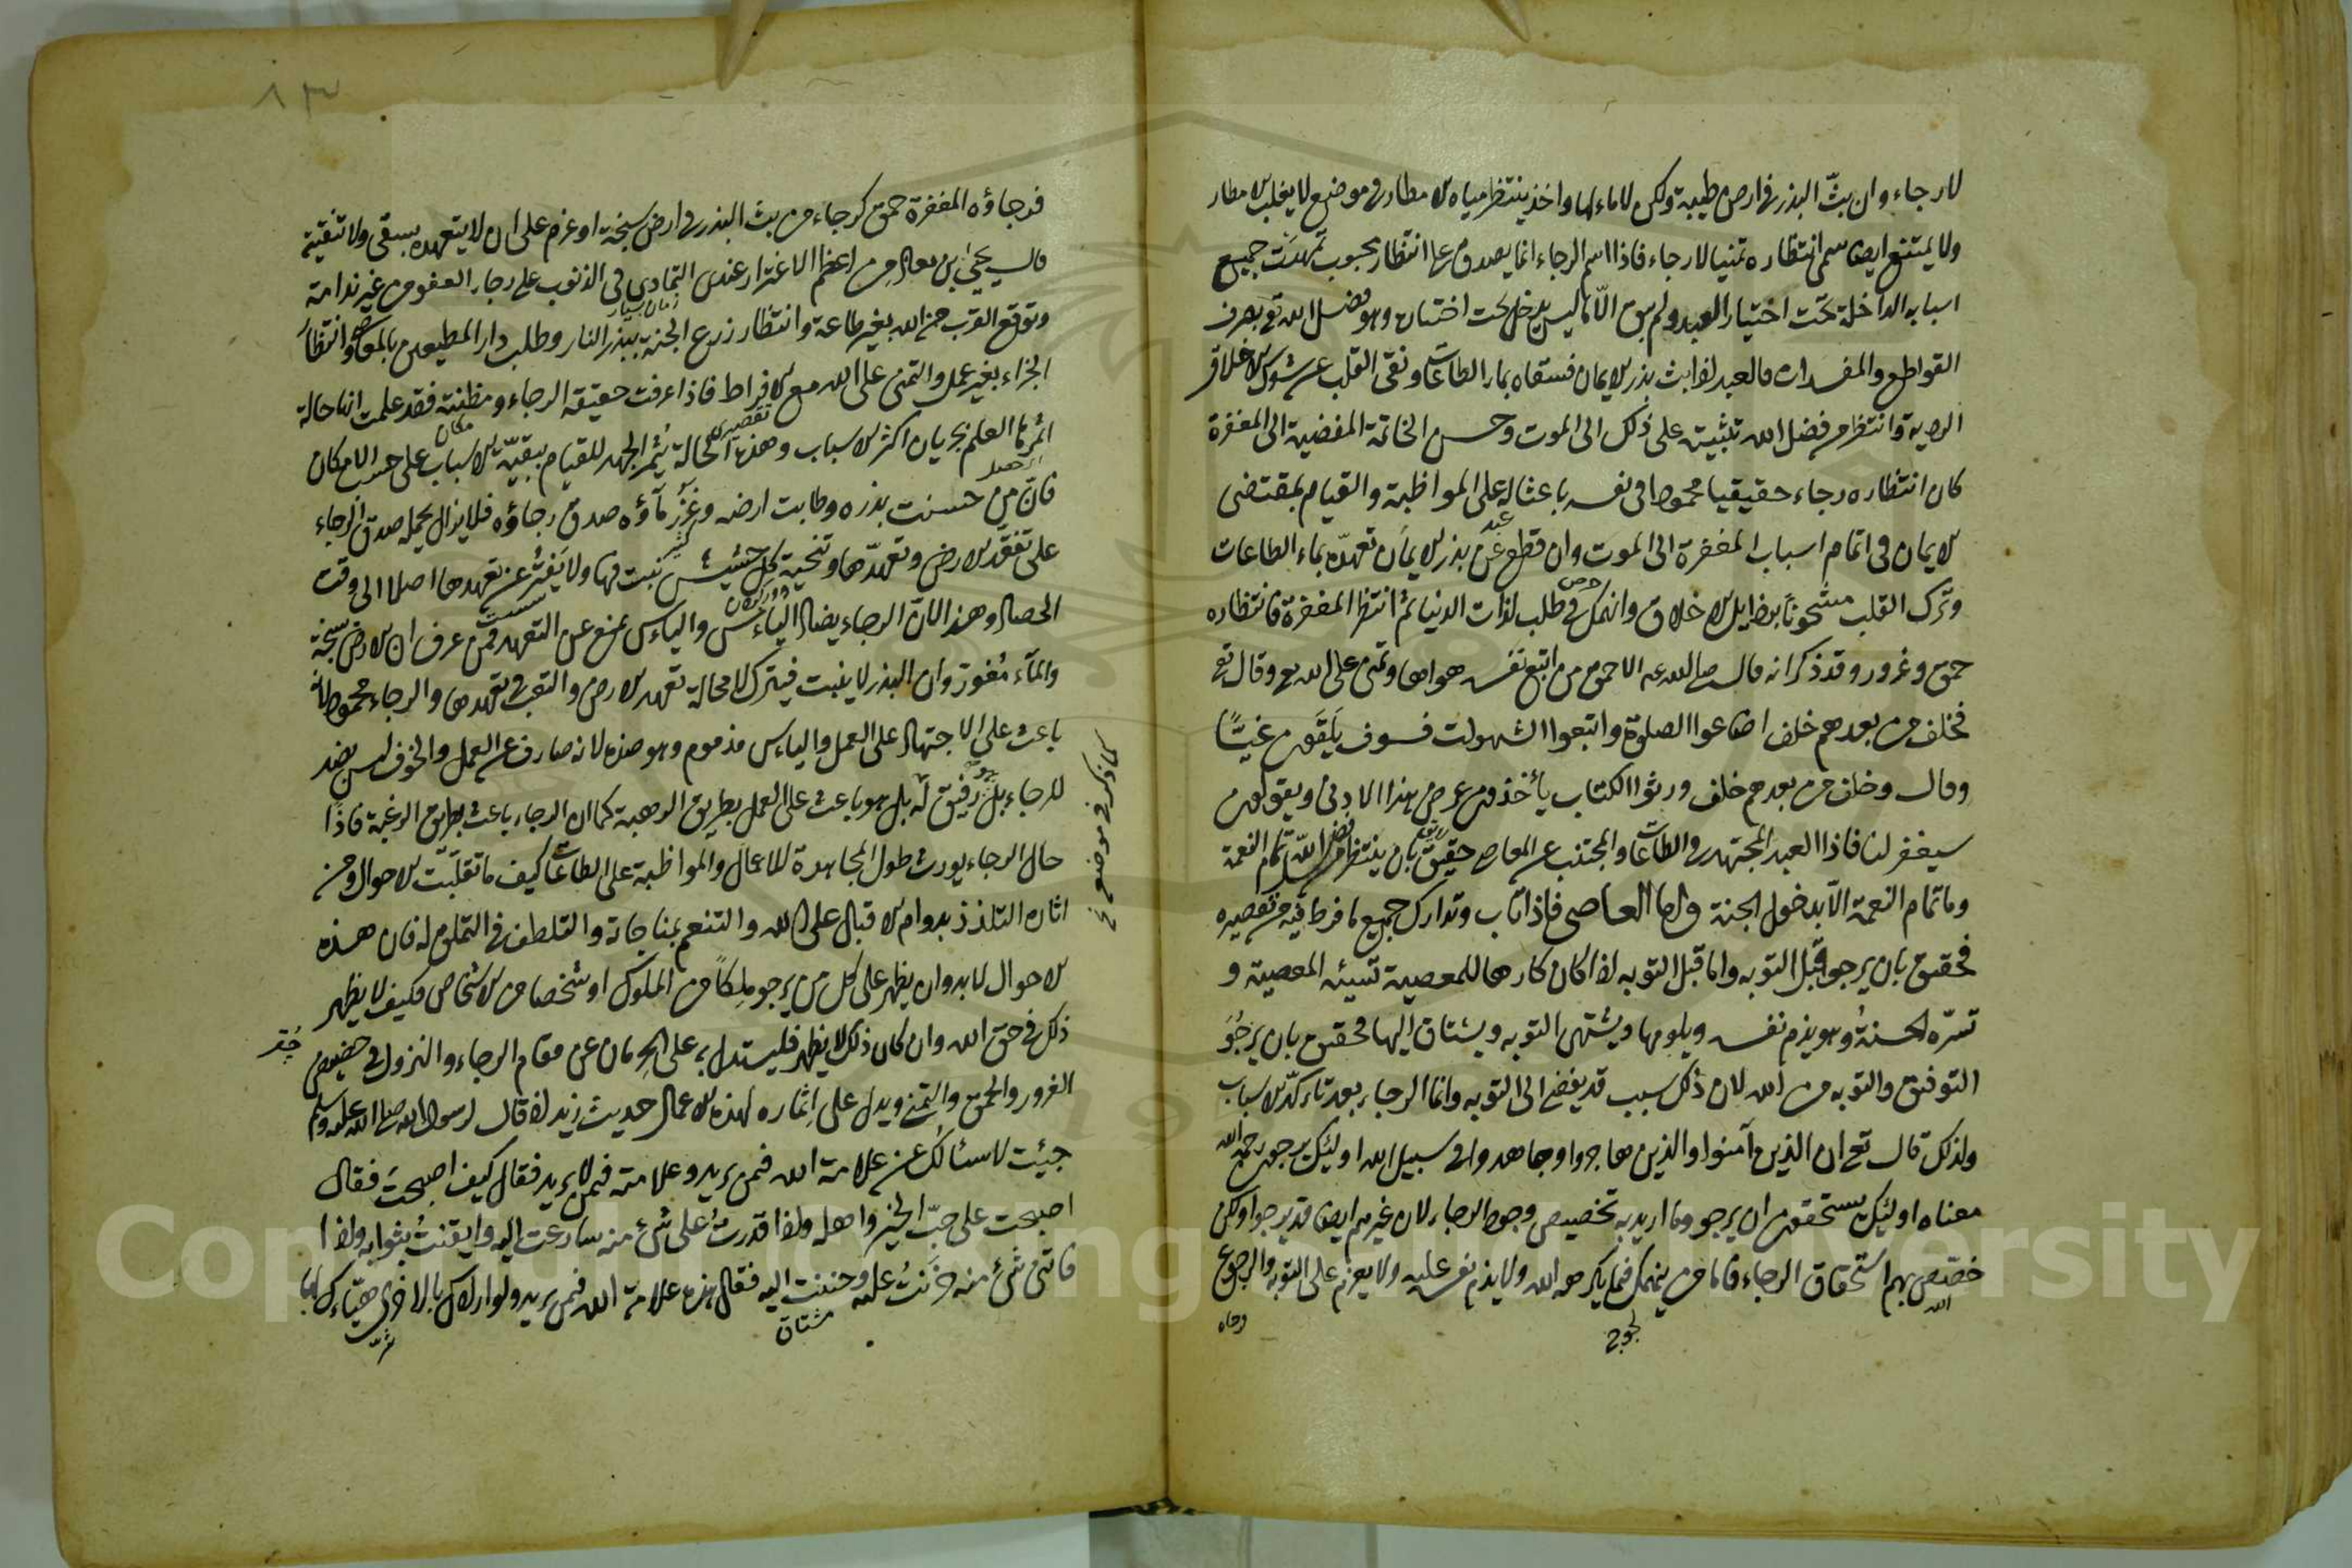 لا رجاء وان بثّ البذر فى ارض طيبة ولكن لا ماء لها واخذ ينتظر مياه الامطار فى موضع لا يغلب الامطار
ولا يمتنع ايضا سمى انتظاره تمنيا لا رجاء فاذا اسم الرجاء انما يصدق على انتظار محبوب تمهدت جميع
اسبابه الداخلة تحت اختيار العبد ولم يبق الّا ما ليس يدخل تحت اختياره وهو فضل الله تع بصرف
القواطع والمفسدات فالعبد اذا بث بذر الايمان فسقاه بماء الطاعات ونقى القلب عن شوك الاخلاق
الردية وانتظر من فضل الله تثبيته على ذلك الى الموت وحسن الخاتمة المفضية الى المغفرة
كان انتظاره رجاء حقيقيا محمودا فى نفسه باعثا له على المواظبة والقيام بمقتضى
الايمان فى اتمام اسباب المغفرة الى الموت وان قطع عن بذر الايمان تعهدّه بماء الطاعات
وترك القلب مشحوناً برذايل الاخلاق وانهمك فى طلب لذات الدنيا ثم انتظر المغفرة فانتظاره
حمق وغرور وقد ذكر انه قال صلى الله عم الاحمق من اتبع نفسه هواها وتمنى على الله تع وقال تع
فخلف من بعدهم خلف اضاعوا الصلوة واتبعوا الشهوات فسوف يَلقَون غيًّا
وقال وخلف من بعدهم خلف ورثوا الكتاب يأخذون عرض هذا الادنى ويقولون
سيغفر لنا فاذا العبد المجتهد فى الطاعات والمجتنب عن المعاصى حقيق بان ينتظر من فضل الله تمام النعمة
وما تمام النعمة الّا بدخول الجنة واما العاصى فاذا تاب وتدارك جميع ما فرط فيه من تقصيره
فحقيق بان يرجو قبل التوبه واما قبل التوبه اذا كان كارها للمعصية تسيئه المعصية و
تسرّه الحسنةُ وهو يذم نفسه ويلومها ويشتهى التوبه ويشتاق اليها فحقيق بان يرجُوَ
التوفيق والتوبه من الله لان ذلك سبب قد يفضى الى التوبه وانما الرجاء بعد تاكدّ الاسباب
ولذلك قال تع ان الذين آمنوا والذين هاجروا وجاهدوا فى سبيل الله اولئك يرجون رحمة الله
معناه اولئك يستحقون ان يرجو وما اريد به تخصيص وجود الرجاء لان غيرهم ايضا قد يرجوا ولكن
خصّص بهم استحقاق الرجاء فاما من ينهمك فيما يكرهه الله ولا يذم نفسه عليه ولا يعزم على التوبه والرجوع
الله
لجوج
فرجاؤه المغفرة حمق كرجاء من بث البذر فى ارض سبخة او عزم على ان لا يتعهده بسقى ولا تنقية
قال يحيى بن معاذ من اعظم الاغترار عندى التمادى فى الذنوب على رجاء العفو من غير ندامة
وتوقع القرب من الله بغير طاعة وانتظار زرع الجنة ببذر النار وطلب دار المطيعين بالمعاصى وانتظار
الجزاء بغير عمل والتمنى على الله مع الافراط فاذا عرفت حقيقة الرجاء ومظنته فقد علمت انها حالة
اثمرها العلم بجريان اكثر الاسباب وهذه الحالة يُثمر الجهد للقيام ببقيّة الاسباب على حسب الامكان
فان من حسنت بذره وطابت ارضه وغَزُر مآؤه صدق رجاؤه فلا يزال يحمله صدق الرجاء
على تفقّد الارض وتعهدّها وتنحية كل حشيش نبت فيها ولا يَفتُر عن تعهدها اصلا الى وقت
الحصاد وهذا لان الرجاء يضاد الياءس والياءس يمنع عن التعهد فمن عرف ان الارض سبخة
والمآء مُغوز وان البذر لا ينبت فيترك لا محالة تعهد الارض والتعب فى تعهدها والرجاء محمود لانه
باعث على الاجتهاد على العمل والياءس مذموم وهو ضده لانه صارف عن العمل والخوف ليس بضد
للرجاء بل رفيق له بل هو باعث على العمل بطريق الرهبة كما ان الرجاء باعث بطريق الرغبة فاذًا
حال الرجاء يورث طول المجاهدة للاعمال والمواظبة على الطاعات كيف ما تقلّبت الاحوال ومن
اثاره التلذذ بدوام الاقبال على الله والتنعم بمناجاته والتلطف فى التملق له فان هذه
الاحوال لا بد وان يظهر على كل من يرجو ملِكاً من الملوك او شخصا من الاشخاص فكيف لا يظهر
ذلك فى حق الله وان كان ذلك لا يظهر فليستدل به على الحِرمان عن مقام الرجاء والنزول فى حضيض
الغرور والحمق والتمنى ويدل على اثماره لهذه الاعمال حديث زيد اذ قال لرسول الله صلى الله عليه وسلم
جيئت لاسئالك عن علامة الله فيمن يريد وعلامته فيمن لا يريد فقال كيف اصبحتَ فقال
اصبحت على حبّ الخير واهله واذا قدرتُ على شئ منه سارعت اليه وايقنتُ بثوابه واذا
فاتنى شئ منه حزَنتُ عليه وحننت اليه فقال هذه علامة الله فيمن يريد ولو ارادك بالاخرى هيّاءك لها
مشتاق
كما ذكر فى موضعه